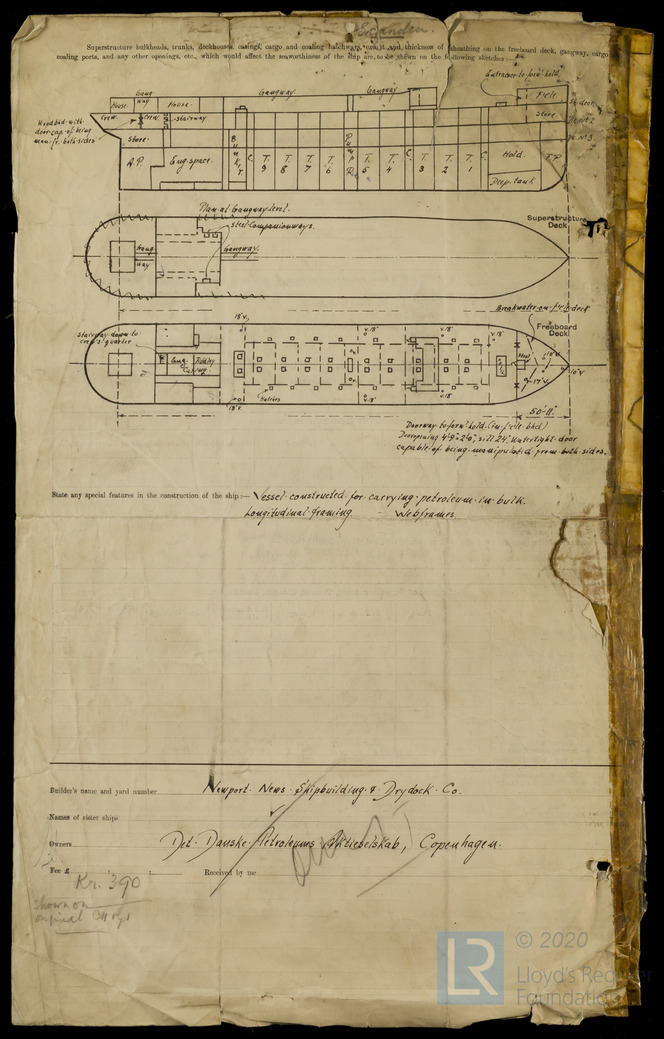 Superstructure bulkheads, trunks, deckhouses, casings, cargo and coaling hatchways, and thickness of sheathing on the freeboard deck, gangway, cargo
coaling ports, and any other openings, etc., which would affect the seaworthiness of the ship are to be shown on the following sketches:—
Entrance to fore hold.
Gang
way
House
House
Gangway
Gangway
F'cle
Store
Crew
Crew
Stairway
Store
A.P.
Eng. space
BUNK.T
C.
T.9
T.8
T.7
T.6
PUMP R.
T.5
T.4
C.
T.3
T.2
T.1
C.
Hold.
Deep tank
F.P.
Plan at Gangway level.
Steel Companionways.
Superstructure
Deck
Gang
way
Gangway.
Breakwater on f'cle deck
Freeboard
Deck
Stairway down to
crew's quarter
18"v.
v.18"
v.18"
Eng.
Casing
Boiler
18"v.
Hatches
v.18"
v.18"
50-11"
Doorway to fore hold (in f'cle bhd)
Dooropening 4'9"x2'0", sill 24", Watertight door
capable of being manipulated from both sides.
State any special features in the construction of the ship:— Vessel constructed for carrying petroleum in bulk.
Longitudinal framing - Webframes
Builder's name and yard number Newport News Shipbuilding & Drydock Co.
Names of sister ships
Owners Det Danske Petroleums Aktieselskab, Copenhagen.
Fee £ Kr. 390 Received by me
Shown on
© 2020
LR
Lloyd's Register
Foundation